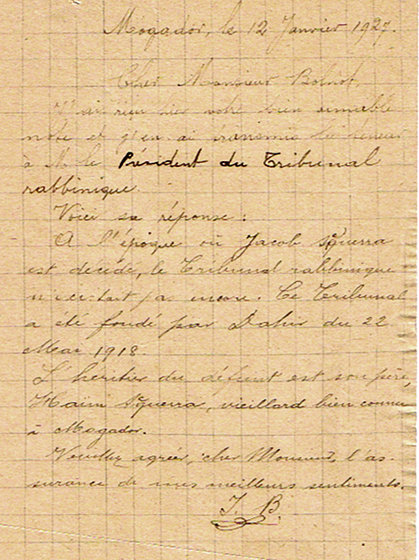 Mogador, le 12 Janvier 1927.
Cher Monsieur
J'ai reçu hier votre bien aimable
note et j'en ai transmis la teneur
à M. le Président du Tribunal
rabbinique.
Voici sa réponse :
A l'époque où Jacob Sguerra
est décédé, le Tribunal rabbinique
n'existait pas encore. Ce Tribunal
a été fondé par Dahir du 22
Mai 1918.
L'heritier du défunt est son père,
Haïm Sguerra, vieillard bien connu
à Mogador.
Veuillez agréer, cher Monsieur, l'as-
surance de mes meilleurs sentiments.
J. B.